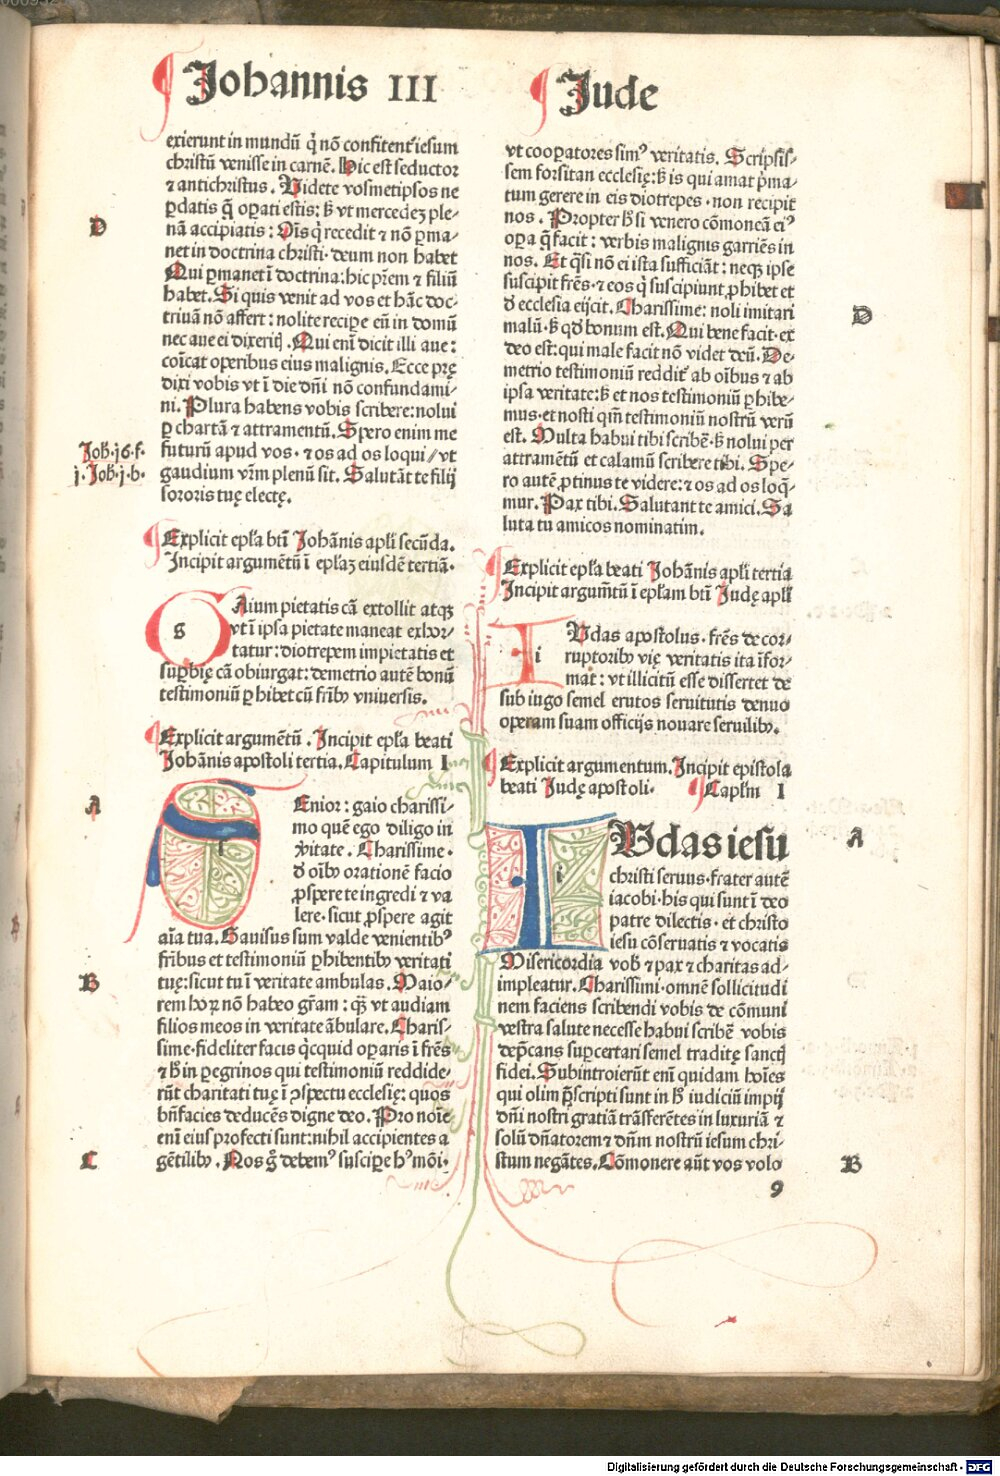 Johannis III
exierunt in mundū q̇ nō confitent᷑ iesum
christū venisse in carnē. Hic est seductor
⁊ antichristus. Videte vosmetipsos ne
ꝑdatis q̄ oꝑati estis: ß vt mercedeꝫ ple-
nā accipiatis: Oīs q̇ recedit ⁊ nō ꝑma-
net in doctrina christi· deum non habet
Qui ꝑmanet ī doctrina: hic pr̄em ⁊ filiū
habet. Si quis venit ad vos et hāc doc-
trinā nō affert: nolite recipe eū in domū
nec aue ei dixeritꝭ. Qui enī dicit illi aue:
coīcat operibus eius malignis. Ecce prę
dixi vobis vt ī die dn̄i nō confundami-
ni. Plura habens vobis scribere: nolui
ꝑ chartā ⁊ attramentū. Spero enim me
futurū apud vos· ⁊ os ad os loqui/ vt
gaudium vr̄m plenū sit. Salutāt te filij
sororis tuę electę.
D
Joh·j6·f·
j·Joh·j·b·
Explicit ep̄la bt̄i Johānis apl̄i secūda.
Incipit argumētū ī ep̄laꝫ eiusdē tertiā.
s
GAium pietatis cā extollit atqꝫ
vt ī ipsa pietate maneat exhor-
tatur: diotrepem impietatis et
suꝑbię cā obiurgat: demetrio autē bonū
testimoniū ꝑhibet cū fr̄ibꝰ vniuersis.
Explicit argumētū. Incipit ep̄la beati
Johānis apostoli tertia. Capitulum I
A
SEnior: gaio charissi-
mo quē ego diligo in
v̇itate. Charissime·
ð oībꝰ orationē facio
ꝓspere te ingredi ⁊ va
lere· sicut ꝓspere agit
aīa tua. Gauisus sum valde venientibꝰ
fr̄ibus et testimoniū ꝑhibentibꝰ veritati
tuę: sicut tu ī veritate ambulas. Maio-
rem hoꝝ nō habeo gr̄am: qꝫ vt audiam
filios meos in veritate ābulare. Charis-
sime· fideliter facis q̇cquid oꝑaris ī fr̄es
⁊ h̄ in ꝑegrinos qui testimoniū reddide-
rūt charitati tuę ī ꝯspectu ecclesię: quos
bn̄ facies deducēs digne deo. Pro noīe
enī eius profecti sunt: nihil accipientes a
gētilibꝰ. Nos g̊ debemꝰ suscipe hꝰmōi·
B
C
Jude
vt cooꝑatores simꝰ veritatis. Scripsis-
sem forsitan ecclesię: ß is qui amat pri̇ma-
tum gerere in eis diotrepes· non recipit
nos. Propter h̄ si venero cōmoneā eiꝰ
oꝑa q̄ facit: verbis malignis garriēs in
nos. Et q̄si nō ei ista sufficiāt: neqꝫ ipse
suscipit fr̄es· ⁊ eos q̇ suscipiunt ꝓhibet et
ð ecclesia eijcit. Charissime: noli imitari
malū· ß qð bonum est. Qui bene facit· ex
deo est: qui male facit nō videt deū. De-
metrio testimoniū reddit᷑ ab oībus ⁊ ab
ipsa veritate: ß et nos testimoniū ꝑhibe-
mus· et nosti qm̄ testimoniū nostrū verū
est. Multa habui tibi scribē· ß nolui per
attramētū et calamū scribere tibi. Spe-
ro autē ꝓtinus te videre: ⁊ os ad os loq̄-
mur. Pax tibi. Salutant te amici. Sa
luta tu amicos nominatim.
D
Explicit ep̄la beati Johānis apl̄i tertia
Incipit argum̄tū ī ep̄lam bt̄i Judę apl̄i
i
IVdas apostolus· fr̄es de cor-
ruptoribꝰ vię veritatis ita īfor-
mat: vt illicitū esse dissertet de
sub iugo semel erutos seruitutis denuo
operam suam officijs nouare seruilibꝰ.
Explicit argumentum. Incipit epistola
beati Judę apostoli. Caplm̄ I
A
i
IVdas iesu
christi seruus· frater autē
iacobi· his qui sunt ī deo
patre dilectis· et christo
iesu cōseruatis ⁊ vocatis
Misericordia vob̄ ⁊ pax ⁊ charitas ad-
impleatur. Charissimi· omnē sollicitudi
nem faciens scribendi vobis de cōmuni
vestra salute necesse habui scribē vobis
dep̄cans suꝑcertari semel traditę sanctꝭ
fidei. Subintroierūt enī quidam hoīes
qui olim p̄scripti sunt in h̄ iudiciū impij
dn̄i nostri gratiā trāsferētes in luxuriā ⁊
solū dn̄atorem ⁊ dn̄m nostrū iesum chri-
stum negātes. Cōmonere aūt vos volo
B
9
Digitalisierung gefördert durch die Deutsche Forschungsgemeinschaft · DFG